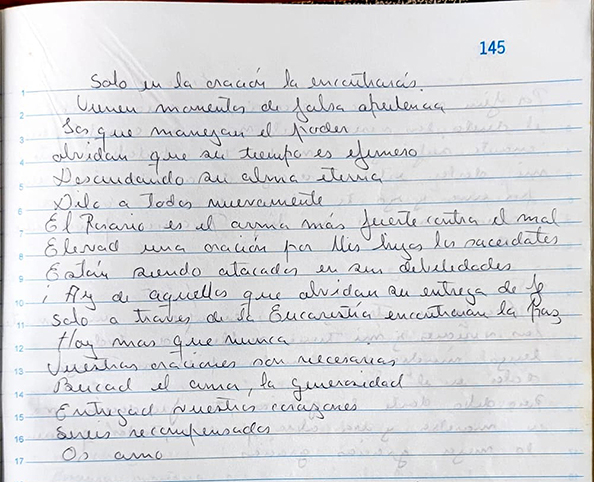 145
Solo en la oración la encontrarás.
Vienen momentos de falsa apetencia
Los que manejan el poder
olvidan que su tiempo es efimero
Descuidando su alma eterna
Dilo a Todos nuevamente
El Rosario es el arma más fuerte contra el mal
Elevad una oración por Mis hijos los sacerdotes
Están siendo atacados en sus debilidades
¡ Ay de aquellos que olvidan su entrega de fe
Solo a través de la Eucaristia encontrarán la Paz
Hoy mas que nunca
Vuestras oraciones son necesarias
Buscad el amor, la generosidad
Entregad vuestros corazones
Sereis recompensados
Os amo